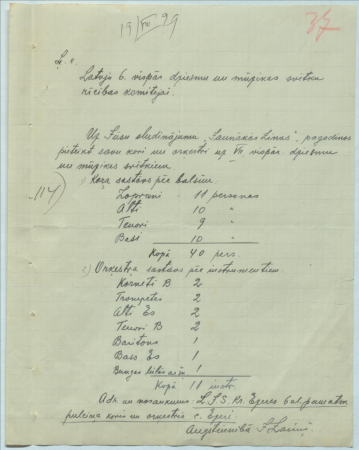 19/IV 99
37
L. c.
Latvju 6. vispār dziesmu un mūzikas svētku
rīcības komitejai.
Uz Jūsu sludinājumu "Jaunākās Ziņās", pagodinos
pieteikt savu kori un orķestri uz VI vispār dziesmu
un mūzikas svētkiem
114)
1) Kora sastavs pēc balsīm:
Soprani - 11 personas
Alti 10 "
Tenori 9 "
Basi 10 "
Kopā 40 pers.
2) Orķestra sastavs pēc instrumentiem
Korneti B 2
Trompetes 2
Alti Es 2
Tenori B 2
Baritons 1
Bass Es 1
Bungas 1
Kopā 11 instr.
Adr. un nosaukums: L.S.S. Kr. Ezeres 6 kl. pamatsk.
pulciņa koris un orķestris c. Ezerē.
Augstcienībā